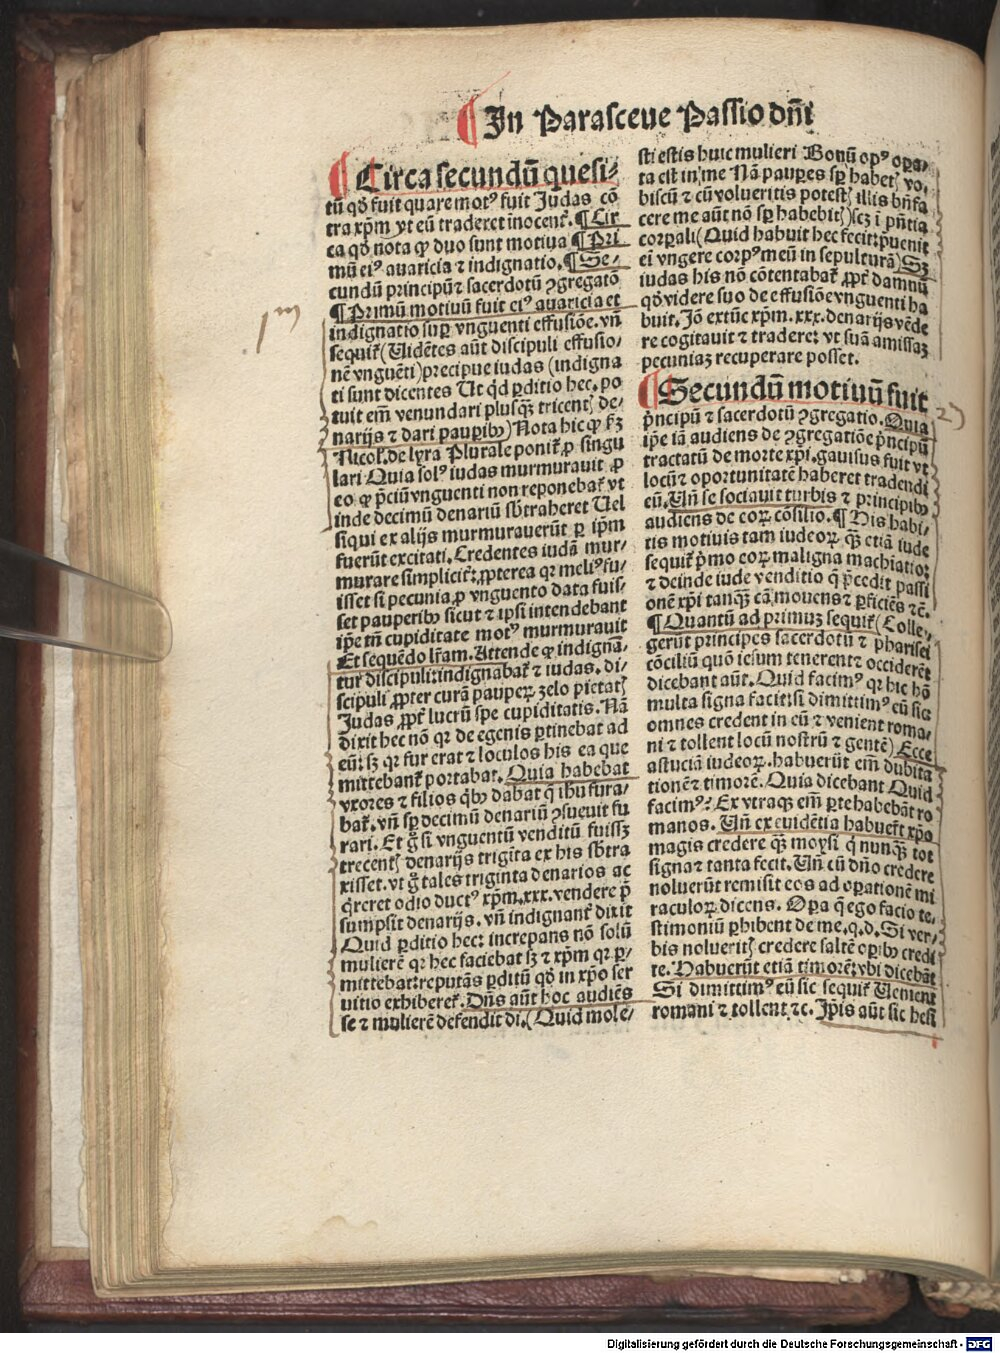 ¶ In Parasceue Passio dn̄i
¶ Circa secundū quesi⸗
tū qd̄ fuit quare motꝰ fuit Judas cō
tra xp̄m vt eū traderet inocent̄. ¶ Cir
ca qd̄ nota ꝙ duo sunt motiua ¶ Pri
mū eiꝰ auaricia ⁊ indignatio. ¶ Se⸗
cundū principū ⁊ sacerdotū ꝯgregatō
¶ Primū motiuū fuit eiꝰ auaricia et
indignatio suꝑ vnguenti effusiōe. vn̄
sequit̄ (Uidētes aūt discipuli effusio⸗
nē vnguēti) precipue iudas (indigna
ti sunt dicentes Ut qd̄ ꝑditio hec. po
tuit em̄ venundari plusqꝫ tricent̄ de⸗
narijs ⁊ dari pauꝑibꝰ) Nota hic ꝙ ẜm
Nicol̄. de lyra Plurale ponit̄ ꝓ singu
lari Quia solꝰ iudas murmurauit ꝓ
eo ꝙ p̄ciū vnguenti non reponebat̄ vt
inde decimū denariū sb̄traheret Uel
siqui ex alijs murmurauerūt ꝑ ip̄m
fuerūt excitati. Credentes iudā mur⸗
murare simplicit̄: ꝓpterea qꝛ meliꝰ fu⸗
isset si pecunia ꝓ vnguento data fuis⸗
set pauperibꝰ sicut ⁊ ip̄si intendebant
ip̄e tn̄ cupiditate motꝰ murmurauit
Et sequēdo lr̄am. Attende ꝙ indignā⸗
tur discipuli: indignabat̄ ⁊ iudas. di⸗
scipuli ꝓpter curā pauperꝝ zelo pietat̄
Judas ꝓpt̄ lucrū spe cupiditatis. Nā
dixit hec nō qꝛ de egenis ꝑtinebat ad
eū: sꝫ qꝛ fur erat ⁊ loculos his ea que
mittebant̄ portabat. Quia habebat
vxores ⁊ filios qͥbꝰ dabat q̄ ibi fura⸗
bat̄. vn̄ sꝑ decimū denariū ꝯsueuit fu
rari. Et g̊ si vnguentū venditū fuissꝫ
trecent̄ denarijs triginta ex his sb̄tra
xisset. vt g̊ tales triginta denarios ac
q̄reret odio ductꝰ xp̄m. xxx. vendere p̄
sumpsit denarijs. vn̄ indignant̄ dixit
Quid ꝑditio hec: increpans nō solū
mulierē qꝛ hec faciebat sꝫ ⁊ xp̄m qꝛ ꝑ⸗
mittebat: reputās ꝑditū qd̄ in xp̄o ser
uitio exhiberet̄. Dn̄s aūt hoc audiēs
se ⁊ mulierē defendit di. (Quid mole⸗
sti estis huic mulieri Bonū opꝰ oꝑa⸗
ta est in me Nā pauꝑes sꝑ habet̄ vo⸗
biscū ⁊ cū volueritis potest̄ illis bn̄fa
cere me aūt nō sꝑ habebit̄) scꝫ ī pn̄tia
corꝑali (Quid habuit hec fecit: p̄uenit
eī vngere corpꝰ meū in sepulturā) Sꝫ
iudas his nō cōtentabat̄ ꝓpt̄ damnū
qd̄ videre suo de effusiōe vnguenti ha
buit. Jō extūc xp̄m. xxx. denarijs vēde
re cogitauit ⁊ tradere: vt suā amissaꝫ
pecuniaꝫ recuperare posset.
¶ Secundū motiuū fuit
pͥncipū ⁊ sacerdotū ꝯgregatio. Quia
ip̄e iā audiens de ꝯgregatiōe pͥncipū
tractatū de morte xp̄i. gauisus fuit vt
locū ⁊ oportunitatē haberet tradendi
eū. Un̄ se sociauit turbis ⁊ principibꝰ
audiens de eoꝝ cōsilio. ¶ His habi⸗
tis motiuis tam iudeoꝝ qꝫ etiā iude
sequit̄ pͥmo eoꝝ maligna machiatio:
⁊ deinde iude venditio q̄ p̄cedit passi
onē xp̄i tanqꝫ cā mouens ⁊ ꝑficiēs ⁊c̄.
¶ Quantū ad primuꝫ sequit̄ (Colle⸗
gerūt principes sacerdotū ⁊ pharisei
cōciliū quō iesum tenerent ⁊ occiderēt
dicebant aūt. Quid facimꝰ qꝛ hic hō
multa signa facit: si dimittimꝰ eū sic
omnes credent in eū ⁊ venient roma⸗
ni ⁊ tollent locū nostrū ⁊ gentē) Ecce
astuciā iudeoꝝ. habuerūt em̄ dubita
tionē ⁊ timorē. Quia dicebant Quid
facimꝰ? Ex vtraqꝫ em̄ ꝑte habebāt ro
manos. Un̄ ex euidētia habuer̄t xp̄o
magis credere qꝫ moysi q̄ nunqꝫ tot
signa ⁊ tanta fecit. Un̄ cū dn̄o credere
noluerūt remisit eos ad oꝑationē mi
raculoꝝ dicens. Oꝑa q̄ ego facio te⸗
stimoniū ꝑhibent de me. q. d. Si ver⸗
bis noluerit̄ credere saltē oꝑibꝰ credi
te. Habuerūt etiā timorē: vbi dicebāt
Si dimittimꝰ eū sic sequit̄ Uenient
romani ⁊ tollent ⁊c. Ip̄is aūt sic hesi
1m
2m
Digitalisierung gefördert durch die Deutsche Forschungsgemeinschaft - DFG